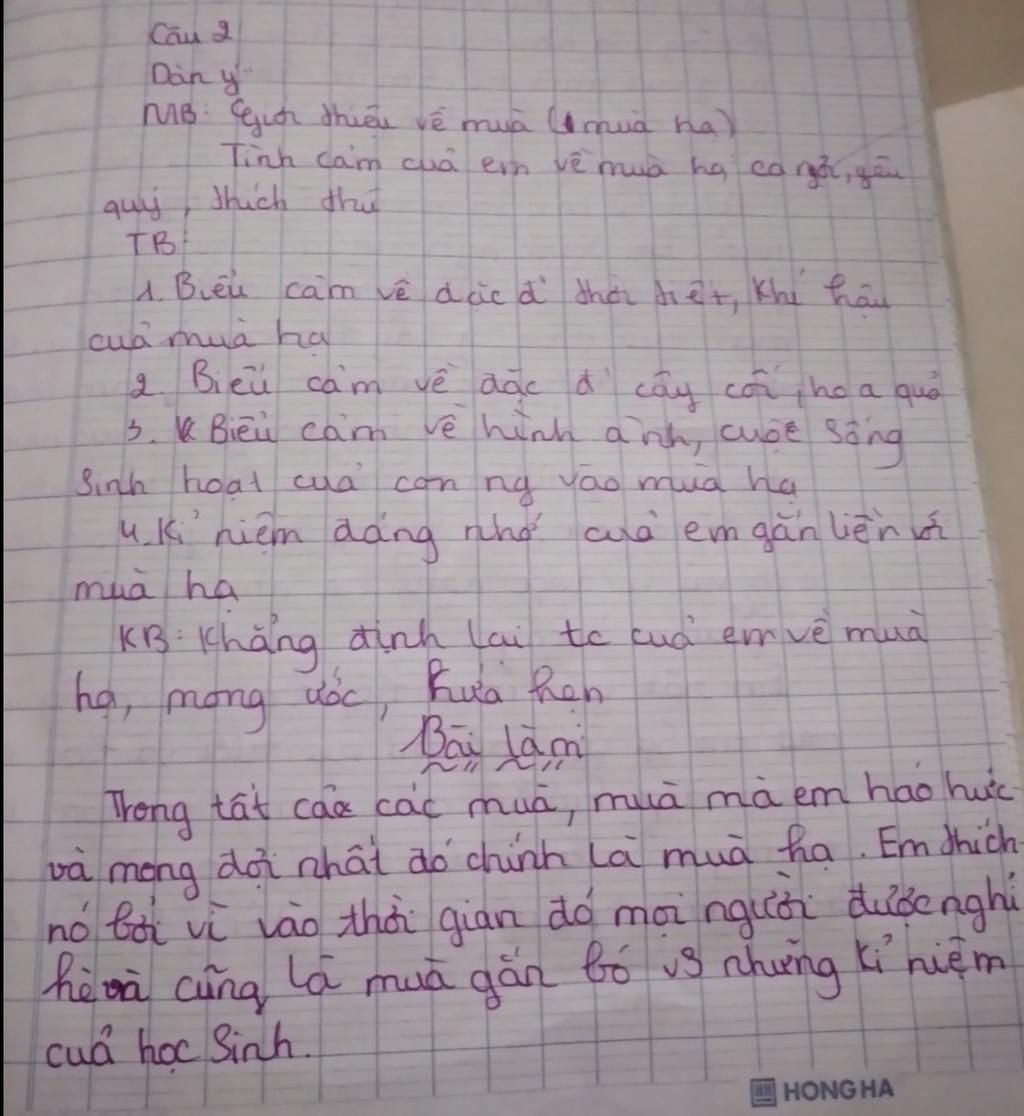 Câu 2
Dàn ý
MB: Giới thiệu về mùa (mùa hạ)
Tình cảm của em về mùa hạ ca ngợi, yêu
quý, thích thú
TB:
1. Biểu cảm về đặc đ' thời tiết, khí hậu
của mùa hạ
2. Biểu cảm về đặc đ' cây cối, hoa quả
3. Biểu cảm về hình ảnh, cuộc sống
sinh hoạt của con ng vào mùa hạ
4. Kỉ niệm đáng nhớ của em gắn liền với
mùa hạ
KB: Khẳng định lại tc của em về mùa
hạ, mong ước, hứa hẹn
Bài làm
Trong tất cả các mùa, mùa mà em háo hức
và mong đợi nhất đó chính là mùa hạ. Em thích
nó bởi vì vào thời gian đó mọi người được nghỉ
hè và cũng là mùa gắn bó vs những kỉ niệm
của học sinh.
HONG HA